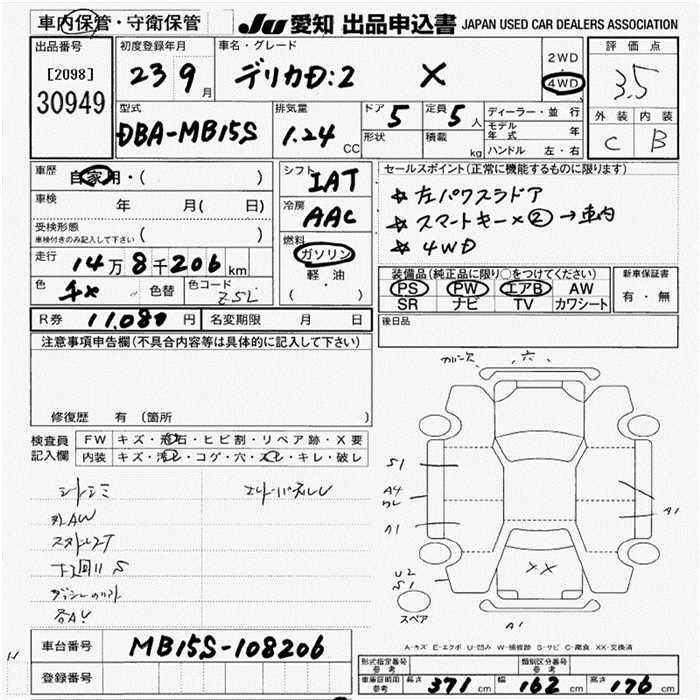 車内保管・守衛保管
JU 愛知 出品申込書 JAPAN USED CAR DEALERS ASSOCIATION
出品番号
[2098]
30949
初度登録年月
23 9月
車名・グレード
デリカD:2 X
2WD
4WD
評価点
3.5
外装 内装
C B
型式
DBA-MB15S
排気量
1.24 CC
ドア 5
形状
定員 5人
積載 kg
ディーラー・並行
モデル年式 年
ハンドル 左・右
車歴 自家用・( )
車検 年 月( 日)
受検形態
車検付きのみ記入して下さい ( )
走行 14万8千206km
色 色替 色コード Z5L
シフト IAT
冷房 AAC
燃料
ガソリン
軽・油
( )
セールスポイント(正常に機能するものに限ります)
☆ 左パワスラドア
☆ スマートキー×② →車内
☆ 4WD
装備品(純正品に限り○をつけてください)
PS PW エアB AW
SR ナビ TV カワシート
新車保証書
有・無
R券 11,080円 名変期限 月 日
後日品
注意事項申告欄(不具合内容等は具体的に記入して下さい)
修復歴 有(箇所 )
検査員記入欄
FW キズ・飛石・ヒビ割・リペア跡・X要
内装 キズ・汚レ・コゲ・穴・スレ・キレ・破レ
シートシミ
AW
下廻りS
カバー欠
六
S1
A4
A1
A1
U2
S1
XX
A1
スペア
A-キズ E-エクボ U-凹み W-補修跡 S-サビ C-腐食 XX-交換済
車台番号 MB15S-108206
登録番号
形式指定番号 参考
類別区分番号 参考
車庫証明用 参考 長さ 371cm 幅 162cm 高さ 176cm